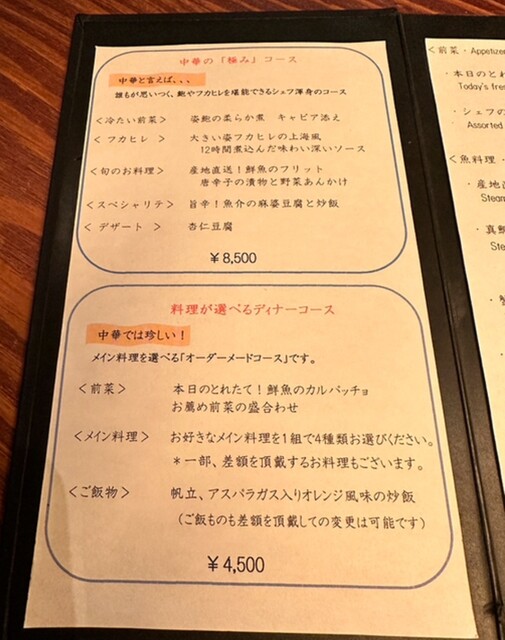 中華の「極み」コース
中華と言えば、、、
誰もが思いつく、鮑やフカヒレを堪能できるシェフ渾身のコース
<冷たい前菜> 姿鮑の柔らか煮 キャビア添え
<フカヒレ> 大きい姿フカヒレの上海風
12時間煮込んだ味わい深いソース
<旬のお料理> 産地直送!鮮魚のフリット
唐辛子の漬物と野菜あんかけ
<スペシャリテ> 旨辛!魚介の麻婆豆腐と炒飯
<デザート> 杏仁豆腐
¥8,500
料理が選べるディナーコース
中華では珍しい!
メイン料理を選べる「オーダーメードコース」です。
<前菜> 本日のとれたて!鮮魚のカルパッチョ
お薦め前菜の盛合わせ
<メイン料理> お好きなメイン料理を1組で4種類お選びください。
*一部、差額を頂戴するお料理もございます。
<ご飯物> 帆立、アスパラガス入りオレンジ風味の炒飯
(ご飯ものも差額を頂戴しての変更は可能です)
¥4,500
<前菜・Appetizer
・本日のとれ
Today's fres
・シェフの
Assorted
<魚料理・
・産地
Steam
・真鯛
Ste